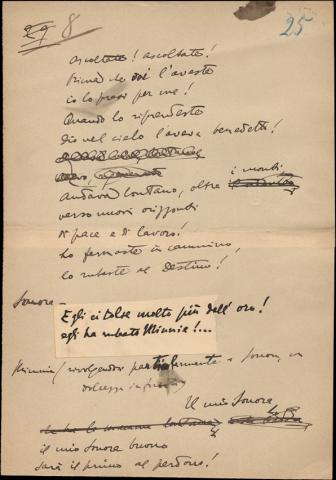 298
25
ascoltate! ascoltate!
Prima che voi l'aveste
io lo presi per me!
Quando lo riprendeste
Dio nel cielo l'aveva benedetto!
Andava lontano, oltre i monti
verso nuovi orizzonti
di pace e di lavoro!
Lo fermaste in cammino,
lo rubaste al Destino!
Sonora -
Egli ci tolse molto più dell'oro!
egli ha rubato Minnie!...
Minnie / rivolgendosi particolarmente a Sonora, con
dolcezza infinita
Il mio Sonora
il mio Sonora buono
sarà il primo al perdono!